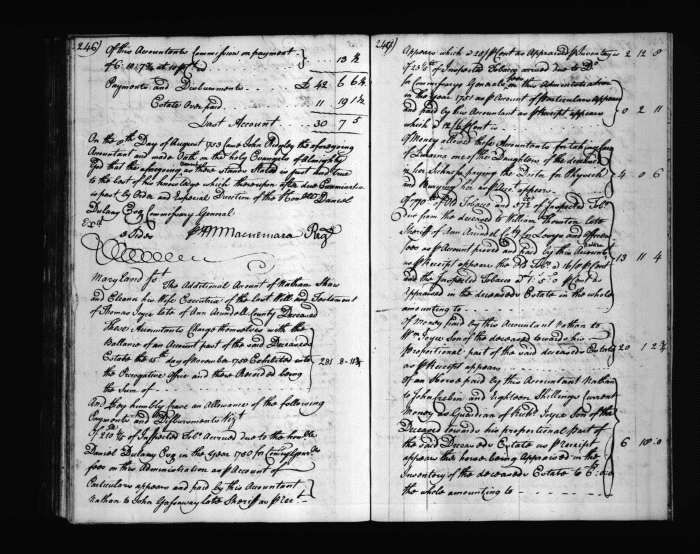 246)
Of this Accountants Commission on payment
of 6.10.7¾ at 10 ⅌ Ct is } 13 ½
Payments and Disbursments £ 42 6 6½
Estate Over paid 11 19 1½
Last Account 30 7 5
On the 9th Day of August 1753 Came John Ridgley the aforegoing
Accountant and made Oath on the holy Evangels of Almighty
God that the aforegoing as these stands Stated is just and true
to the best of his knowledge which thereupon after due Examination
is past by Order and Especial Direction of the Honble Daniel
Dulany Esq Commissary General
Exd
2 Sides
⅌ Macnemara Regr
Maryland sst The Additional Account of Nathan Shaw
and Eleanr his Wife Executrix of the Last Will and Testament
of Thomas Joyce late of Ann Arundell County Deceased
These Accountants Charge themselves with the
Ballance of an Account part of the said Deceaseds
Estate the 15th day of November 1750 Exhibited into
the Prerogative Office and there Recorded being
the Sum of } 281 8 11¾
And they humbly Crave an Allowance of the following
Payments and Disbursments Vizt
Of 210 lb of Inspected Tobo Accrued due to the honble
Daniel Dulany Esq in the Year 1750 for Commissarys
fees on this Administration as ⅌ Account of
Particulars appears and paid by this Accountant
Nathan to John Gassaway late Sheriff as ⅌ Rect
247)
Appears which at 25/ ⅌ Cont as Appraised ⅌ Inventory 2 12 9
of Inspected Tobacco accrued due to Do
for Commissary Generals fees on this Administration
in the Year 1751 as ⅌ Account of Particulars appears
and paid by this Accountant as ⅌ Receipt appears
which at 16/6 ⅌ Cont is } 0 2 11
Of Money allowed these Accountants for taking care
of one of the Daughters of the deceased
in her Sickness paying the Doctor for Physick
and Burying her as ⅌ Acct appears } 4 0 6
Tobacco and 372 lb of Inspected Tobo
Due from the deceased to William Thornton late
Sheriff of Ann Arundel County for Levys and Officers
Fees as ⅌ Account proved and paid by this Accountant
as ⅌ Receipt appears the Tobo at 16/8 ⅌ Cont
and the Inspected Tobacco at ⅌ Cont as
Appraised in the deceaseds Estate in the whole
amounting to } 13 11 4
Of Money paid by this Accountant Nathan to
Wm Joyce Son of the deceased towards his
proportional part of the said deceaseds Estate
as ⅌ Receipt appears } 20 1 2¾
Of an Horse paid by this Accountant Nathan
to John and Eighteen Shillings Current
Money as Guardian of Richd Joyce Son of the
Deceased towards his proportional part of
the said Deceaseds Estate as ⅌ Receipt
appears the horse being Appraised in the
Inventory of the deceaseds Estate to
the whole amounting to } 6 18 0